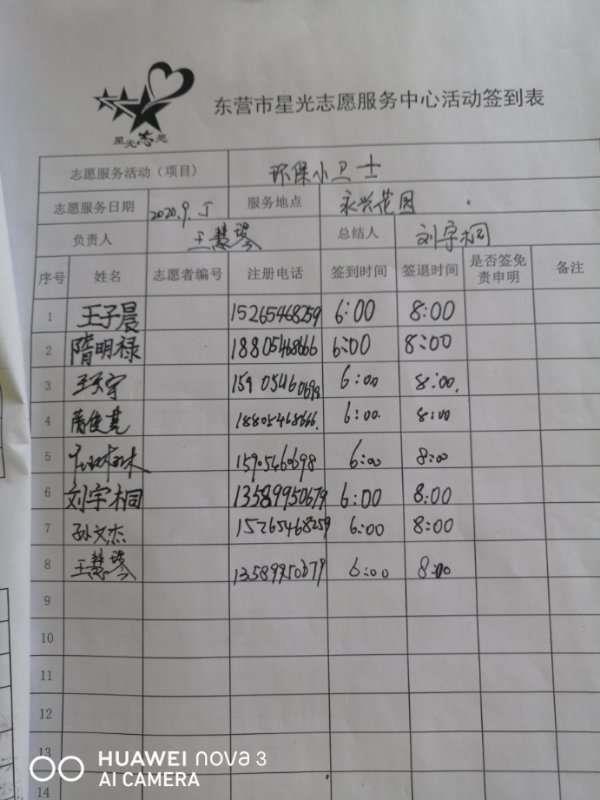 东营市星光志愿服务中心活动签到表
星光志愿
志愿服务活动（项目） 环保小卫士
志愿服务日期 2020.9.5 服务地点 永兴花园
负责人 王慧琴 总结人 刘宇桐
序号 姓名 志愿者编号 注册电话 签到时间 签退时间 是否签免责申明 备注
1 王子晨 15265468259 6:00 8:00
2 隋明禄 18805468666 6:00 8:00
3 6:00 8:00.
4 18805468666. 6:00. 8:00
5 15905460698 6:00 8:00
6 刘宇桐 13589950679 6:00 8:00
7 孙文杰 15265468259 6:00 8:00
8 王慧琴 13589950679 6:00 8:00
9
10
11
12
13
14
HUAWEI nova 3
AI CAMERA